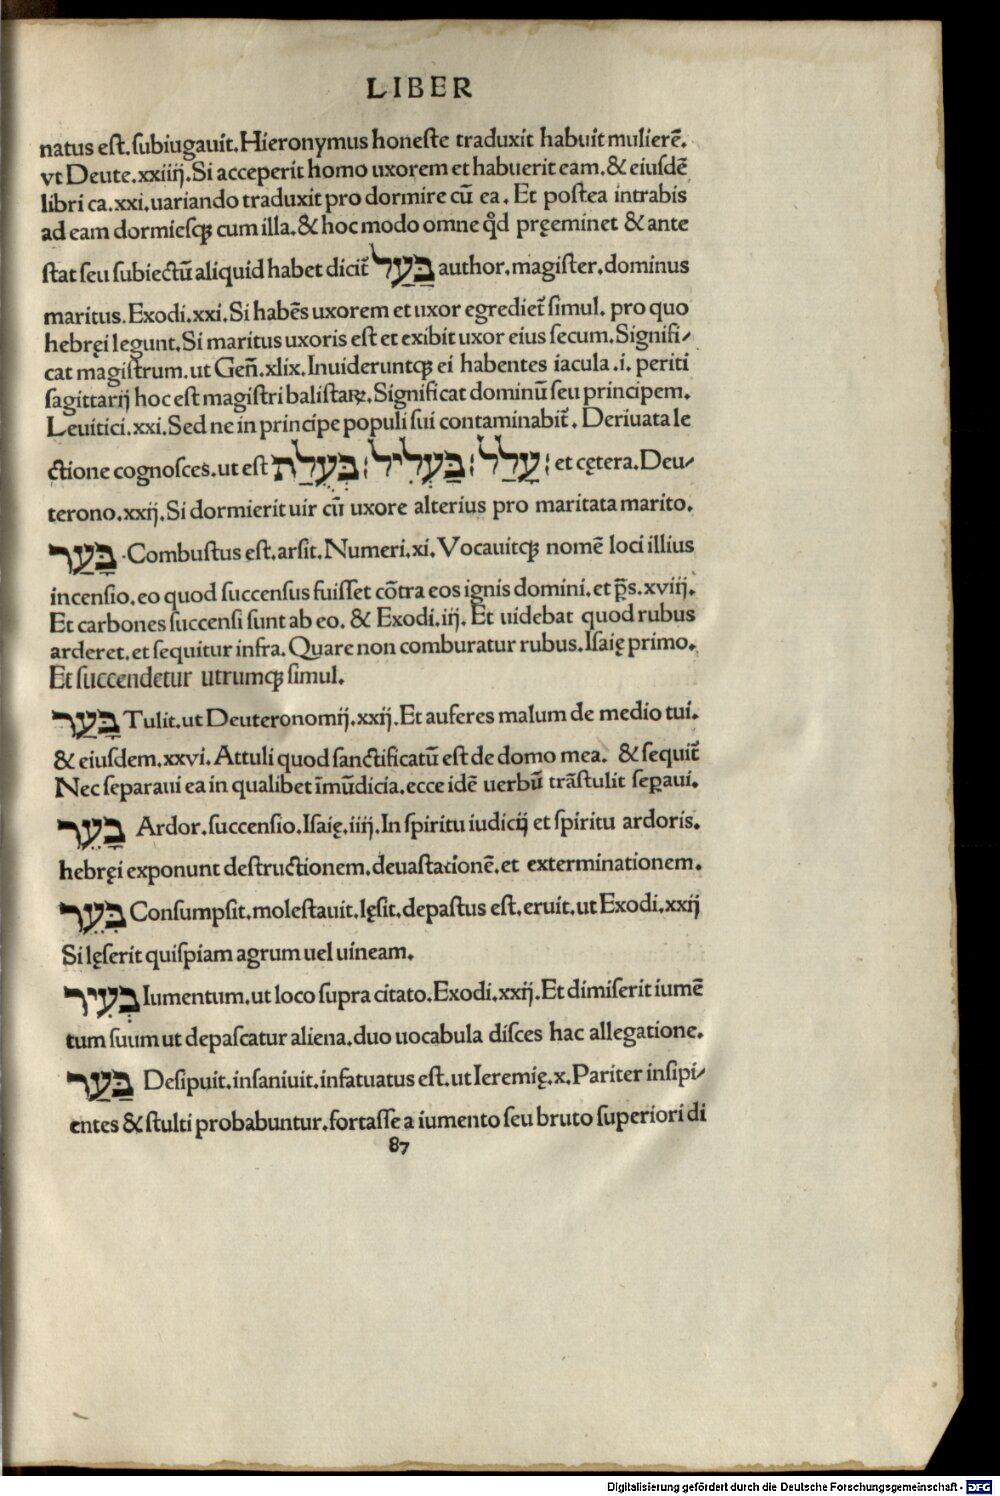 LIBER
natus eſt.ſubiugauit.Hieronymus honeſte traduxit habuit mulierē.
vt Deute.xxiiij.Si acceperit homo uxorem et habuerit eam.& eiuſdē
libri ca.xxi.uariando traduxit pro dormire cū ea. Et poſtea intrabis
ad eam dormieſqꝫ cum illa.& hoc modo omne qd pręeminet & ante
ſtat ſeu ſubiectū aliquid habet dicit̃ בַּעַל author.magiſter.dominus
maritus.Exodi.xxi.Si habēs uxorem et uxor egrediet̃ ſimul. pro quo
hebręi legunt.Si maritus uxoris eſt et exibit uxor eius ſecum.Signifi⸗
cat magiſtrum.ut Geñ.xlix.Inuideruntqꝫ ei habentes iacula.i. periti
ſagittarij hoc eſt magiſtri baliſtaꝝ.Significat dominū ſeu principem.
Leuitici.xxi.Sed ne in principe populi ſui contaminabit̃. Deriuata le
ctione cognoſces.ut eſt עָלַל׃ בַּעְלִיל׃ בְּעֻלַת׃ et cętera.Deu⸗
terono.xxij.Si dormierit uir cū uxore alterius pro maritata marito.
בָּעַר .Combuſtus eſt.arſit.Numeri.xi.Vocauitqꝫ nomē loci illius
incenſio.eo quod ſuccenſus fuiſſet cōtra eos ignis domini.et p̄s.xvij.
Et carbones ſuccenſi ſunt ab eo. & Exodi.iij. Et uidebat quod rubus
arderet.et ſequitur infra.Quare non comburatur rubus.Iſaię primo.
Et ſuccendetur utrumqꝫ ſimul.
בָּעַר Tulit.ut Deuteronomij.xxij.Et auferes malum de medio tui.
& eiuſdem.xxvi.Attuli quod ſanctificatū eſt de domo mea. & ſequit̃
Nec ſeparaui ea in qualibet īmūdicia.ecce idē uerbū trāſtulit ſeꝑaui.
בָּעֵר Ardor.ſuccenſio.Iſaię.iiij.In ſpiritu iudicij et ſpiritu ardoris.
hebręi exponunt deſtructionem.deuaſtationē.et exterminationem.
בִּעֵר Conſumpſit.moleſtauit.lęſit.depaſtus eſt.eruit.ut Exodi.xxij
Si lęſerit quiſpiam agrum uel uineam.
בְּעִיר Iumentum.ut loco ſupra citato.Exodi.xxij.Et dimiſerit iumē
tum ſuum ut depaſcatur aliena.duo uocabula diſces hac allegatione.
בַּעַר Deſipuit.inſaniuit.infatuatus eſt.ut Ieremię.x.Pariter inſipi⸗
entes & ſtulti probabuntur.fortaſſe a iumento ſeu bruto ſuperiori di
87
Digitalisierung gefördert durch die Deutsche Forschungsgemeinschaft - DFG